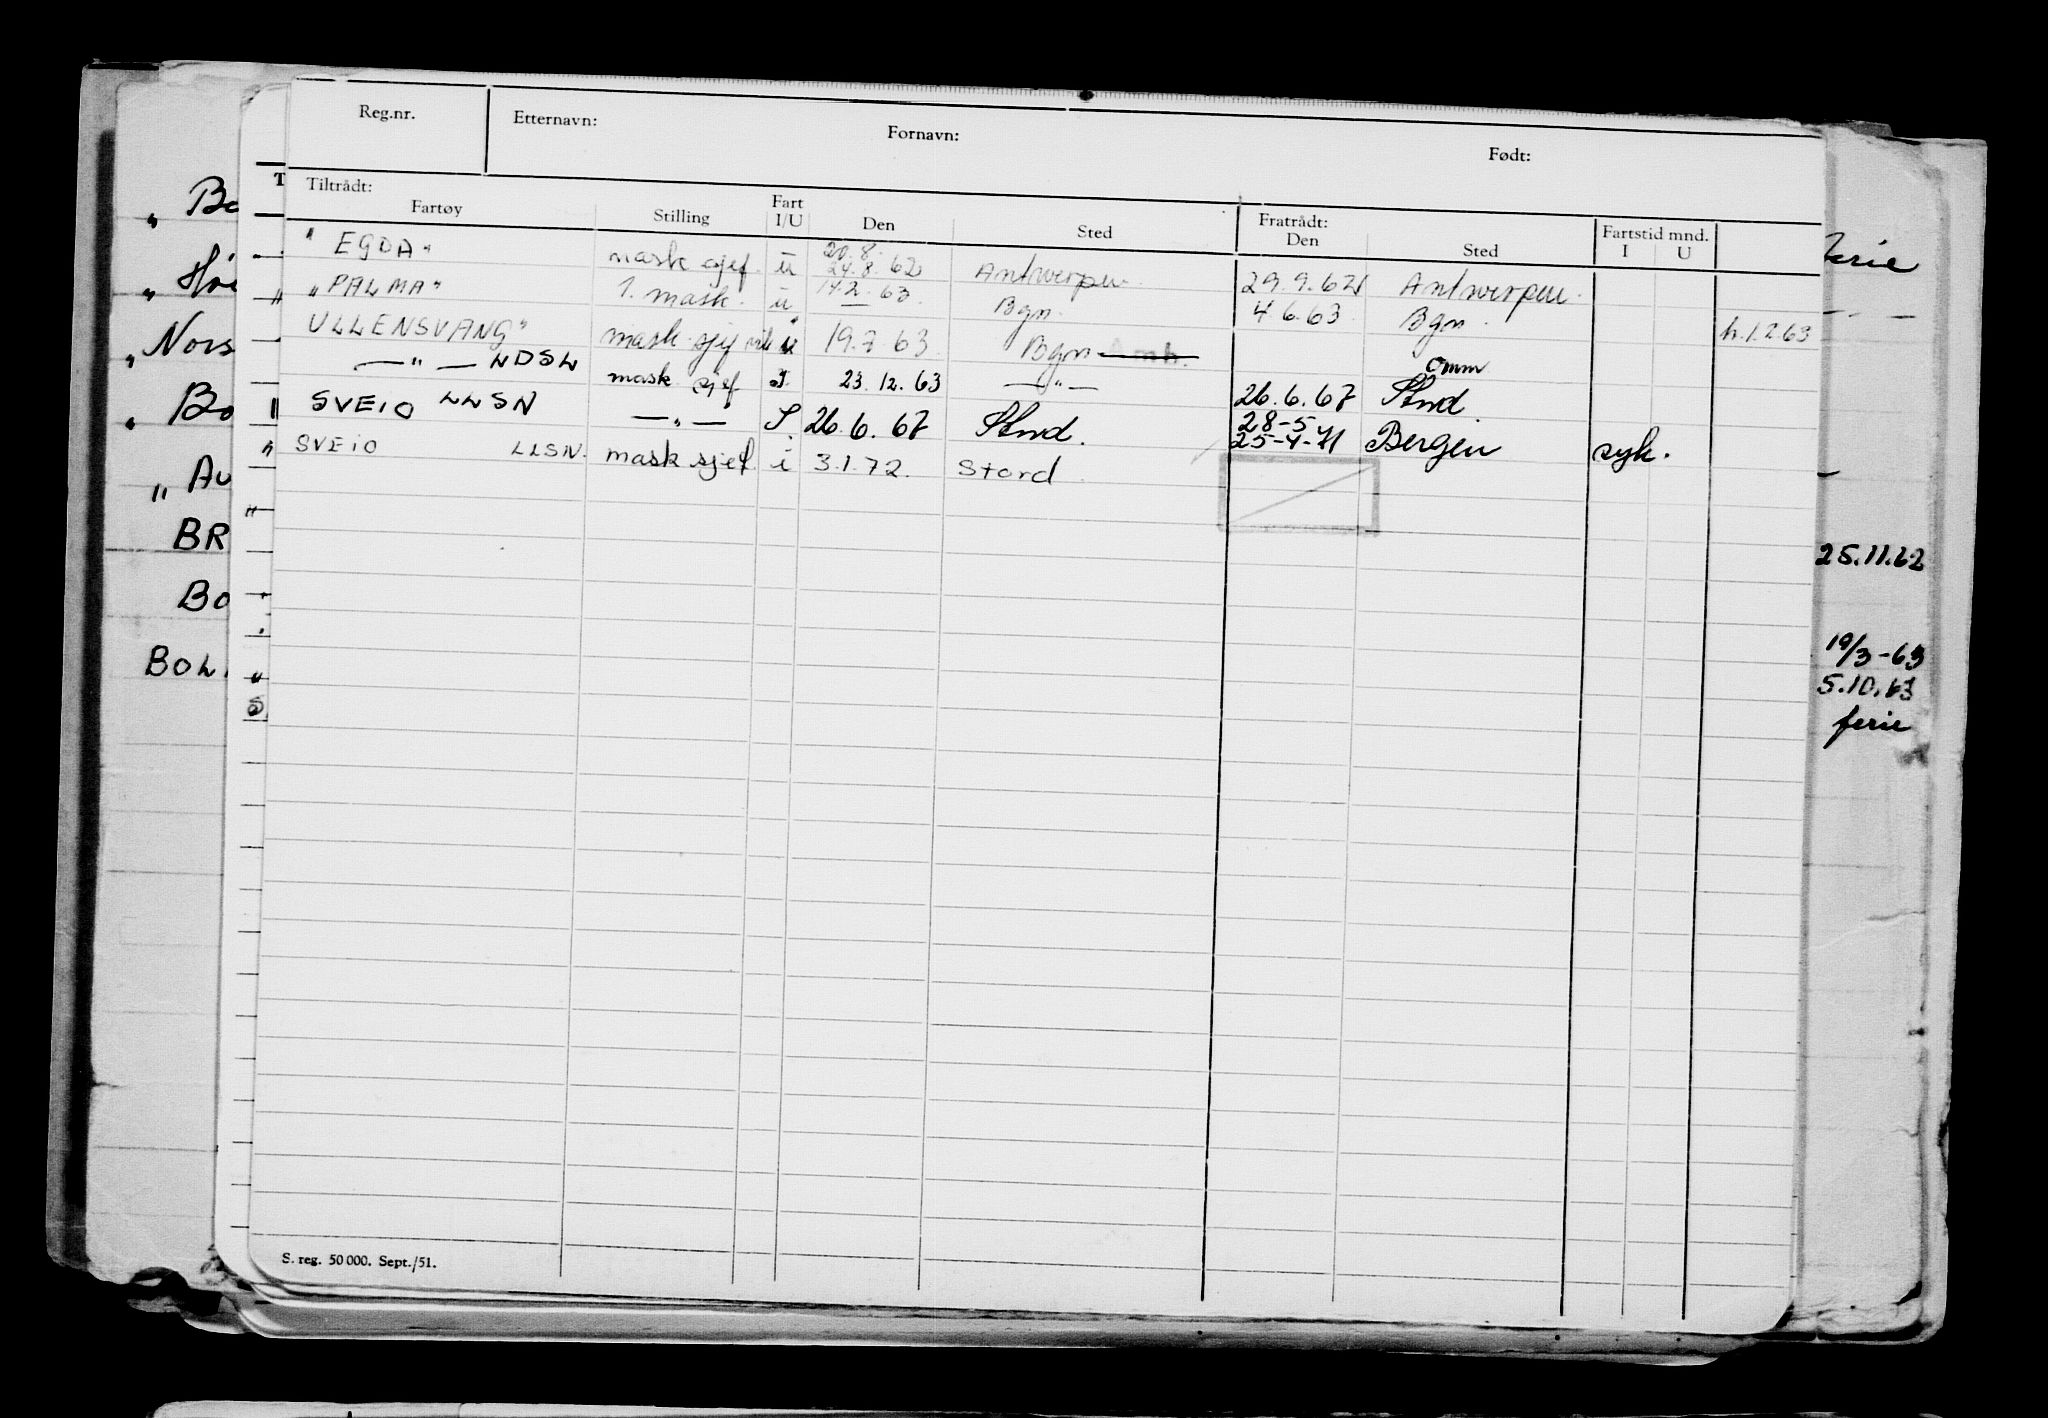 Reg.nr. Etternavn: Fornavn: Født:
Tiltrådt: Fratrådt:
Fartøy Stilling Fart I/U Den Sted Den Sted Fartstid mnd. I U
20.8.
" EGDA" mask sjef. u 24.8.62 Antwerpen 29.9.62 Antwerpen.
"PALMA" 1. mask. u 14.2.63 Bgn. 4 6.63 Bgn. h.1.2.63
ULLENSVANG" mask. sjef u 19.7.63 Bgn
— " — LDSL mask sjef I. 23.12.63 — " — 26.6.67 omm Stord
28-5
SVEIO LLSN — " — I 26.6.67 Stord. 25-4-71 Bergen syk.
SVEIO LLSN. mask sjef i 3.1.72. Stord
S. reg. 50 000. Sept./51.
T
" Bo
" Høi
" Nors
" Bo
" Au
BR
Bo
BOL
ferie
25.11.62
19/3-63
5.10.63
ferie